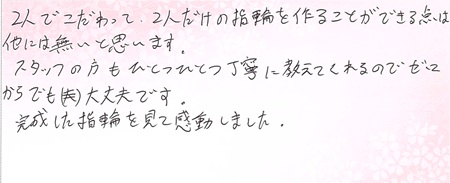 2人でこだわって、2人だけの指輪を作ることができる点は
他には無いと思います。
スタッフの方もひとつひとつ丁寧に教えてくれるのでゼロ
からでも大丈夫です。
完成した指輪を見て感動しました。